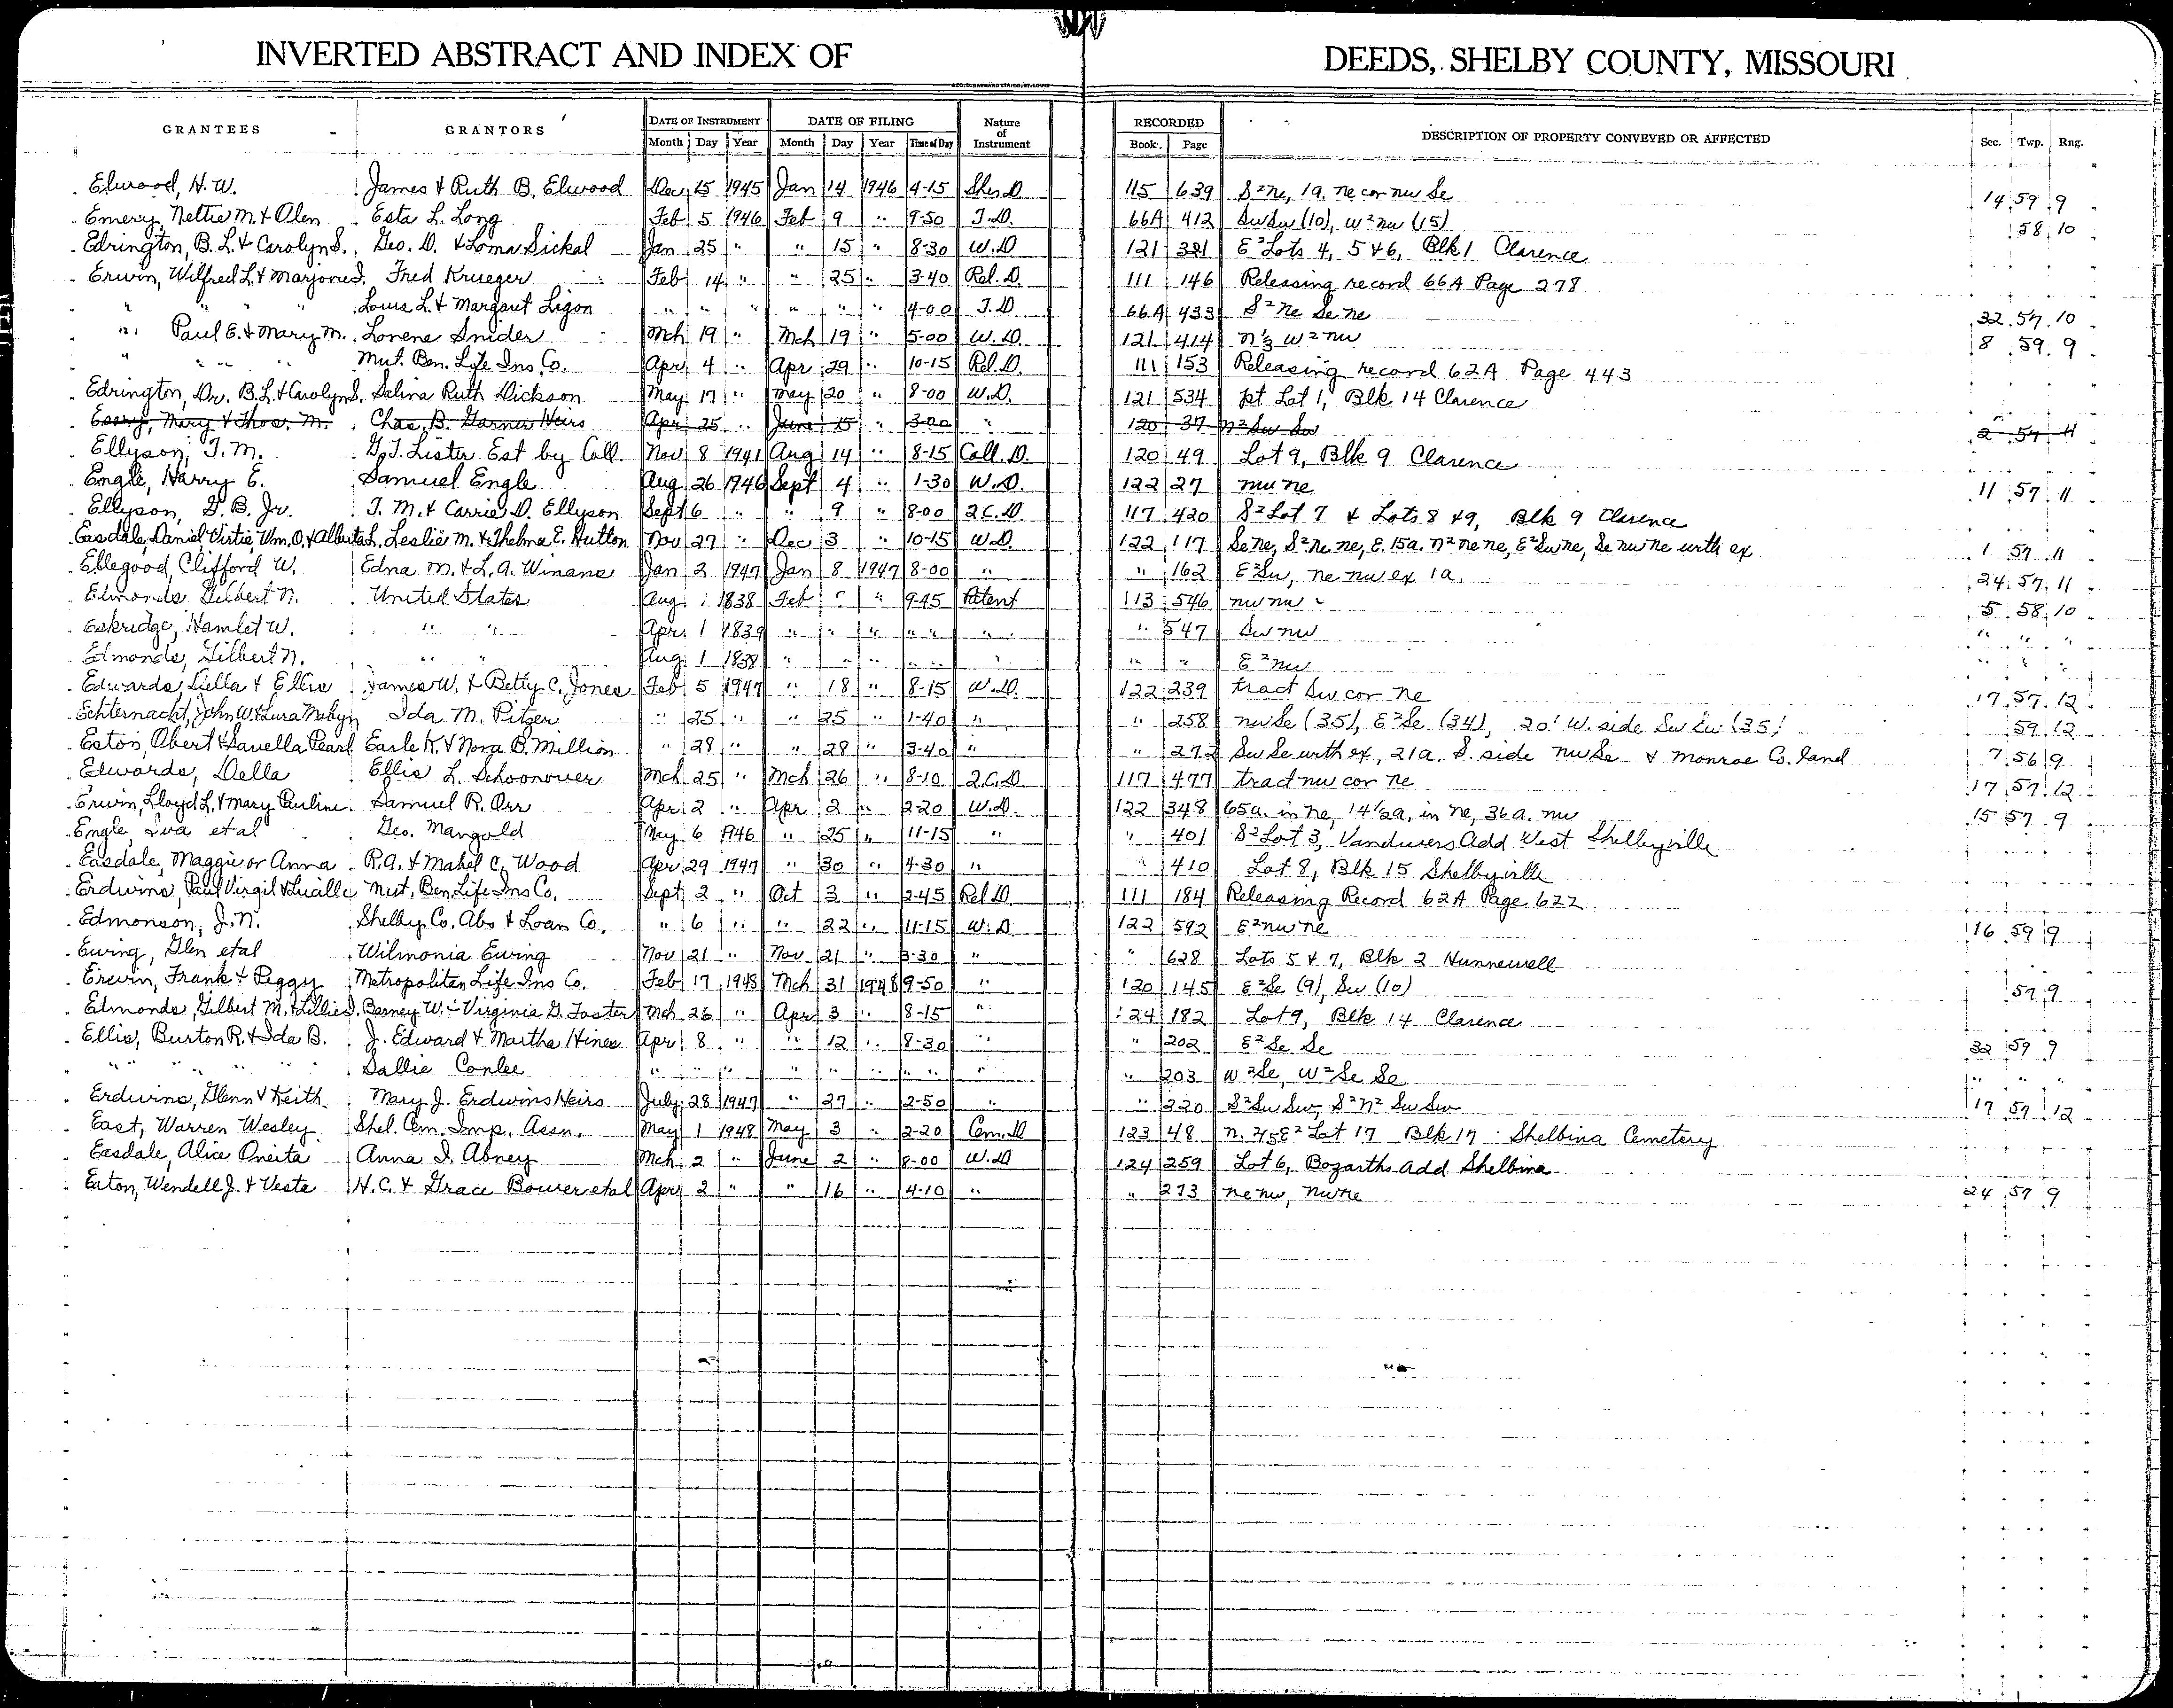 INVERTED ABSTRACT AND INDEX OF DEEDS, SHELBY COUNTY, MISSOURI
GRANTEES GRANTORS DATE OF INSTRUMENT DATE OF FILING Nature of Instrument RECORDED DESCRIPTION OF PROPERTY CONVEYED OR AFFECTED Sec. Twp. Rng.
Month Day Year Month Day Year Time of Day Book Page
Elwood, H. W. James & Ruth B. Elwood Dec 15 1945 Jan 14 1946 4-15 Shs. D 115 639 S²ne, 1a. ne cor nw Se 14 59 9
Emery, Nettie M. & Alen Esta L. Long Feb 5 1946 Feb 9 " 9-50 T.D. 66A 412 Sw Sw (10), w²nw (15) 58 10
Edrington, B. L. & Carolyn S. Geo. D. & Loma Sickal Jan 25 " " 15 " 8-30 W.D 121 381 E² Lots 4, 5 & 6, Blk 1 Clarence
Erwin, Wilfred L. & Marjorie J. Fred Krueger Feb 14 " " 25 " 3-40 Rel. D. 111 146 Releasing record 66A Page 278
" " " Louis L. & Margaret Ligon " " " " " " 4-00 T.D 66A 433 S² ne Se ne 32 57 10
" Paul E. & Mary M. Lorene Snider Mch 19 " Mch 19 " 5-00 W.D. 121 414 n⅓ w² nw 8 59 9
" " " " Mut. Ben. Life Ins. Co. Apr 4 " Apr 29 " 10-15 Rel. D. 111 153 Releasing record 62A Page 443
Edrington, Dr. B.L. & Carolyn S. Salina Ruth Dickson May 17 " May 20 " 8-00 W.D. 121 534 pt Lot 1, Blk 14 Clarence
Essry, Mary & Thos. M. Chas. B. Garner Heirs Apr 25 " June 15 " 3-00 " 120 37 n² Sw Sw 2 57 11
Ellyson, T. M. G.T. Lister Est by Coll. Nov 8 1941 Aug 14 " 8-15 Coll. D. 120 49 Lot 9, Blk 9 Clarence
Engle, Harry E. Samuel Engle Aug 26 1946 Sept 4 " 1-30 W.D. 122 27 nw ne 11 57 11
Ellyson, G. B. Jr. T. M. & Carrie D. Ellyson Sept 6 " " 9 " 8-00 Q.C.D. 117 420 S² Lot 7 & Lots 8 & 9, Blk 9 Clarence
Easdale, Daniel Virtie, Wm. O. & Alberta L. Leslie M. & Thelma E. Hutton Nov 27 " Dec 3 " 10-15 W.D. 122 117 Se ne, S² ne ne, E. 15a. n² ne ne, E² Sw ne, Se nw ne with ex 1 57 11
Ellegood, Clifford W. Edna M. & L. A. Winans Jan 2 1947 Jan 8 1947 8-00 " " 162 E² Sw, ne nw ex 1a. 24 57 11
Elmonds Gilbert N. United States Aug 1 1838 Feb " " 9-45 Patent 113 546 nw nw 5 58 10
Eskridge, Hamlet W. " " Apr. 1 1839 " " " " " " 547 Sw nw " " "
Elmonds, Gilbert N. " " Aug 1 1838 " " " " " " " E² nw " " "
Edwards, Della & Ellis James W. & Betty C. Jones Feb 5 1947 " 18 " 8-15 W.D. 122 239 tract Sw cor ne 17 57 12
Echternacht, John W. & Lura Mabyn Ida M. Pitzer " 25 " " 25 " 1-40 " " 258 nw Se (35), E² Se (34), 20' W. side Sw Sw (35) 59 12
Eston, Obert & Savella Pearl Earle K. & Nora B. Million " 28 " " 28 " 3-40 " " 272 Sw Se with ex, 21a. S. side nw Se & Monroe Co. land 7 56 9
Edwards, Della Ellis L. Schoonover Mch 25 " Mch 26 " 8-10 Q.C.D. 117 477 tract nw cor ne 17 57 12
Erwin, Lloyd L. & Mary Pauline Samuel R. Orr Apr 2 " Apr 2 " 2-20 W.D. 122 348 65a. in ne, 14½a. in ne, 36a. nw 15 57 9
Engle, Iva etal Geo. Mangold May 6 1946 " 25 " 11-15 " " 401 S² Lot 3, Vandivers Add West Shelbyville
Easdale, Maggie or Anna R.A. & Mabel C. Wood Apr 29 1947 " 30 " 4-30 " " 410 Lot 8, Blk 15 Shelbyville
Erdwins, Paul Virgil & Lucille Mut. Ben. Life Ins Co. Sept 2 " Oct 3 " 2-45 Rel D. 111 184 Releasing Record 62A Page 622
Edmonson, J. N. Shelby Co. Abs & Loan Co. " 6 " " 22 " 11-15 W.D. 122 592 E² nw ne 16 59 9
Ewing, Glen etal Wilmonia Ewing Nov 21 " Nov 21 " 3-30 " " 628 Lots 5 & 7, Blk 2 Hunnewell
Erwin, Frank & Peggy Metropolitan Life Ins Co. Feb 17 1948 Mch 31 1948 9-50 " 120 145 E² Se (9), Sw (10) 57 9
Edmonds, Gilbert M. & Lillie J. Barney W. & Virginia G. Foster Mch 26 " Apr 3 " 8-15 " 124 182 Lot 9, Blk 14 Clarence
Ellis, Burton R. & Ida B. J. Edward & Martha Hines Apr 8 " " 12 " 8-30 " " 202 E² Se Se 32 59 9
" " " " Sallie Conlee " " " " " " " " " 203 w² Se, w² Se Se " " "
Erdwins, Glenn & Keith Mary J. Erdwins Heirs July 28 1947 " 27 " 2-50 " " 220 S² Sw Sw, S² n² Sw Sw 17 57 12
East, Warren Wesley Shel. Cem. Imp. Assn. May 1 1948 May 3 " 2-20 Cem. D 123 48 n. 4/5 E² Lot 17 Blk 17 Shelbina Cemetery
Easdale, Alice Oneita Anna I. Abney Mch 2 " June 2 " 8-00 W.D 124 259 Lot 6, Bozarths Add Shelbina
Eaton, Wendell J. & Vesta H. C. & Grace Bower etal Apr 2 " " 16 " 4-10 " " 273 ne nw, nw ne 24 57 9